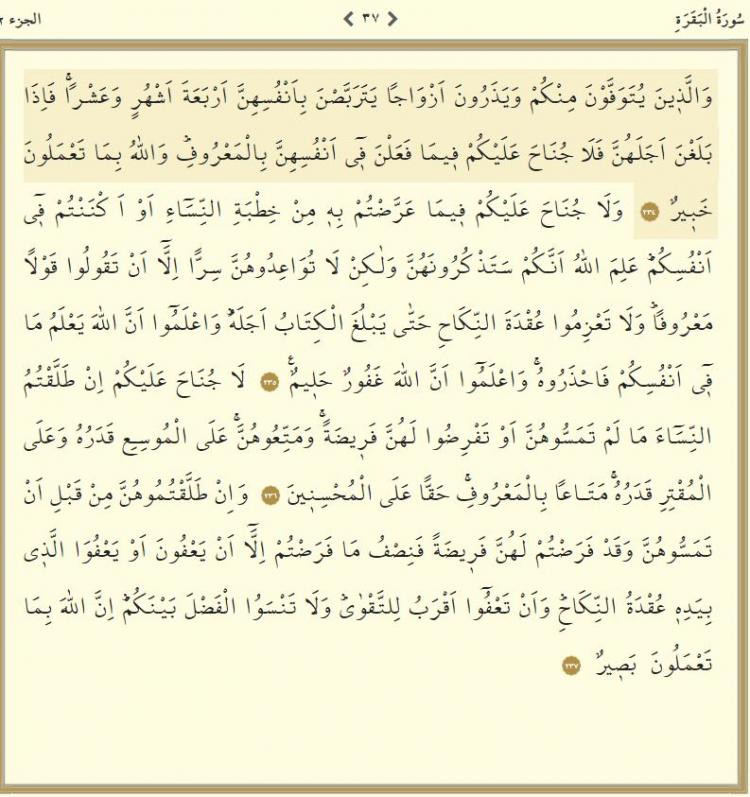 سُورَةُ الْبَقَرَةِ ٣٧ الجزء ٢
وَالَّذ۪ينَ يُتَوَفَّوْنَ مِنْكُمْ وَيَذَرُونَ اَزْوَاجًا يَتَرَبَّصْنَ بِاَنْفُسِهِنَّ اَرْبَعَةَ اَشْهُرٍ وَعَشْرًاۚ فَاِذَا
بَلَغْنَ اَجَلَهُنَّ فَلَا جُنَاحَ عَلَيْكُمْ ف۪يمَا فَعَلْنَ ف۪ٓي اَنْفُسِهِنَّ بِالْمَعْرُوفِۜ وَاللّٰهُ بِمَا تَعْمَلُونَ
خَب۪يرٌ ٢٣٤ وَلَا جُنَاحَ عَلَيْكُمْ ف۪يمَا عَرَّضْتُمْ بِه۪ مِنْ خِطْبَةِ النِّسَٓاءِ اَوْ اَكْنَنْتُمْ ف۪ٓي
اَنْفُسِكُمْۜ عَلِمَ اللّٰهُ اَنَّكُمْ سَتَذْكُرُونَهُنَّ وَلٰكِنْ لَا تُوَاعِدُوهُنَّ سِرًّا اِلَّٓا اَنْ تَقُولُوا قَوْلًا
مَعْرُوفًاۜ وَلَا تَعْزِمُوا عُقْدَةَ النِّكَاحِ حَتّٰى يَبْلُغَ الْكِتَابُ اَجَلَهُۜ وَاعْلَمُٓوا اَنَّ اللّٰهَ يَعْلَمُ مَا
ف۪ٓي اَنْفُسِكُمْ فَاحْذَرُوهُۚ وَاعْلَمُٓوا اَنَّ اللّٰهَ غَفُورٌ حَل۪يمٌ۟ ٢٣٥ لَا جُنَاحَ عَلَيْكُمْ اِنْ طَلَّقْتُمُ
النِّسَٓاءَ مَا لَمْ تَمَسُّوهُنَّ اَوْ تَفْرِضُوا لَهُنَّ فَر۪يضَةًۚ وَمَتِّعُوهُنَّۚ عَلَى الْمُوسِعِ قَدَرُهُ وَعَلَى
الْمُقْتِرِ قَدَرُهُۚ مَتَاعًا بِالْمَعْرُوفِۚ حَقًّا عَلَى الْمُحْسِن۪ينَ ٢٣٦ وَاِنْ طَلَّقْتُمُوهُنَّ مِنْ قَبْلِ اَنْ
تَمَسُّوهُنَّ وَقَدْ فَرَضْتُمْ لَهُنَّ فَر۪يضَةً فَنِصْفُ مَا فَرَضْتُمْ اِلَّٓا اَنْ يَعْفُونَ اَوْ يَعْفُوَا الَّذ۪ي
بِيَدِه۪ عُقْدَةُ النِّكَاحِۜ وَاَنْ تَعْفُٓوا اَقْرَبُ لِلتَّقْوٰىۜ وَلَا تَنْسَوُا الْفَضْلَ بَيْنَكُمْۜ اِنَّ اللّٰهَ بِمَا
تَعْمَلُونَ بَص۪يرٌ ٢٣٧